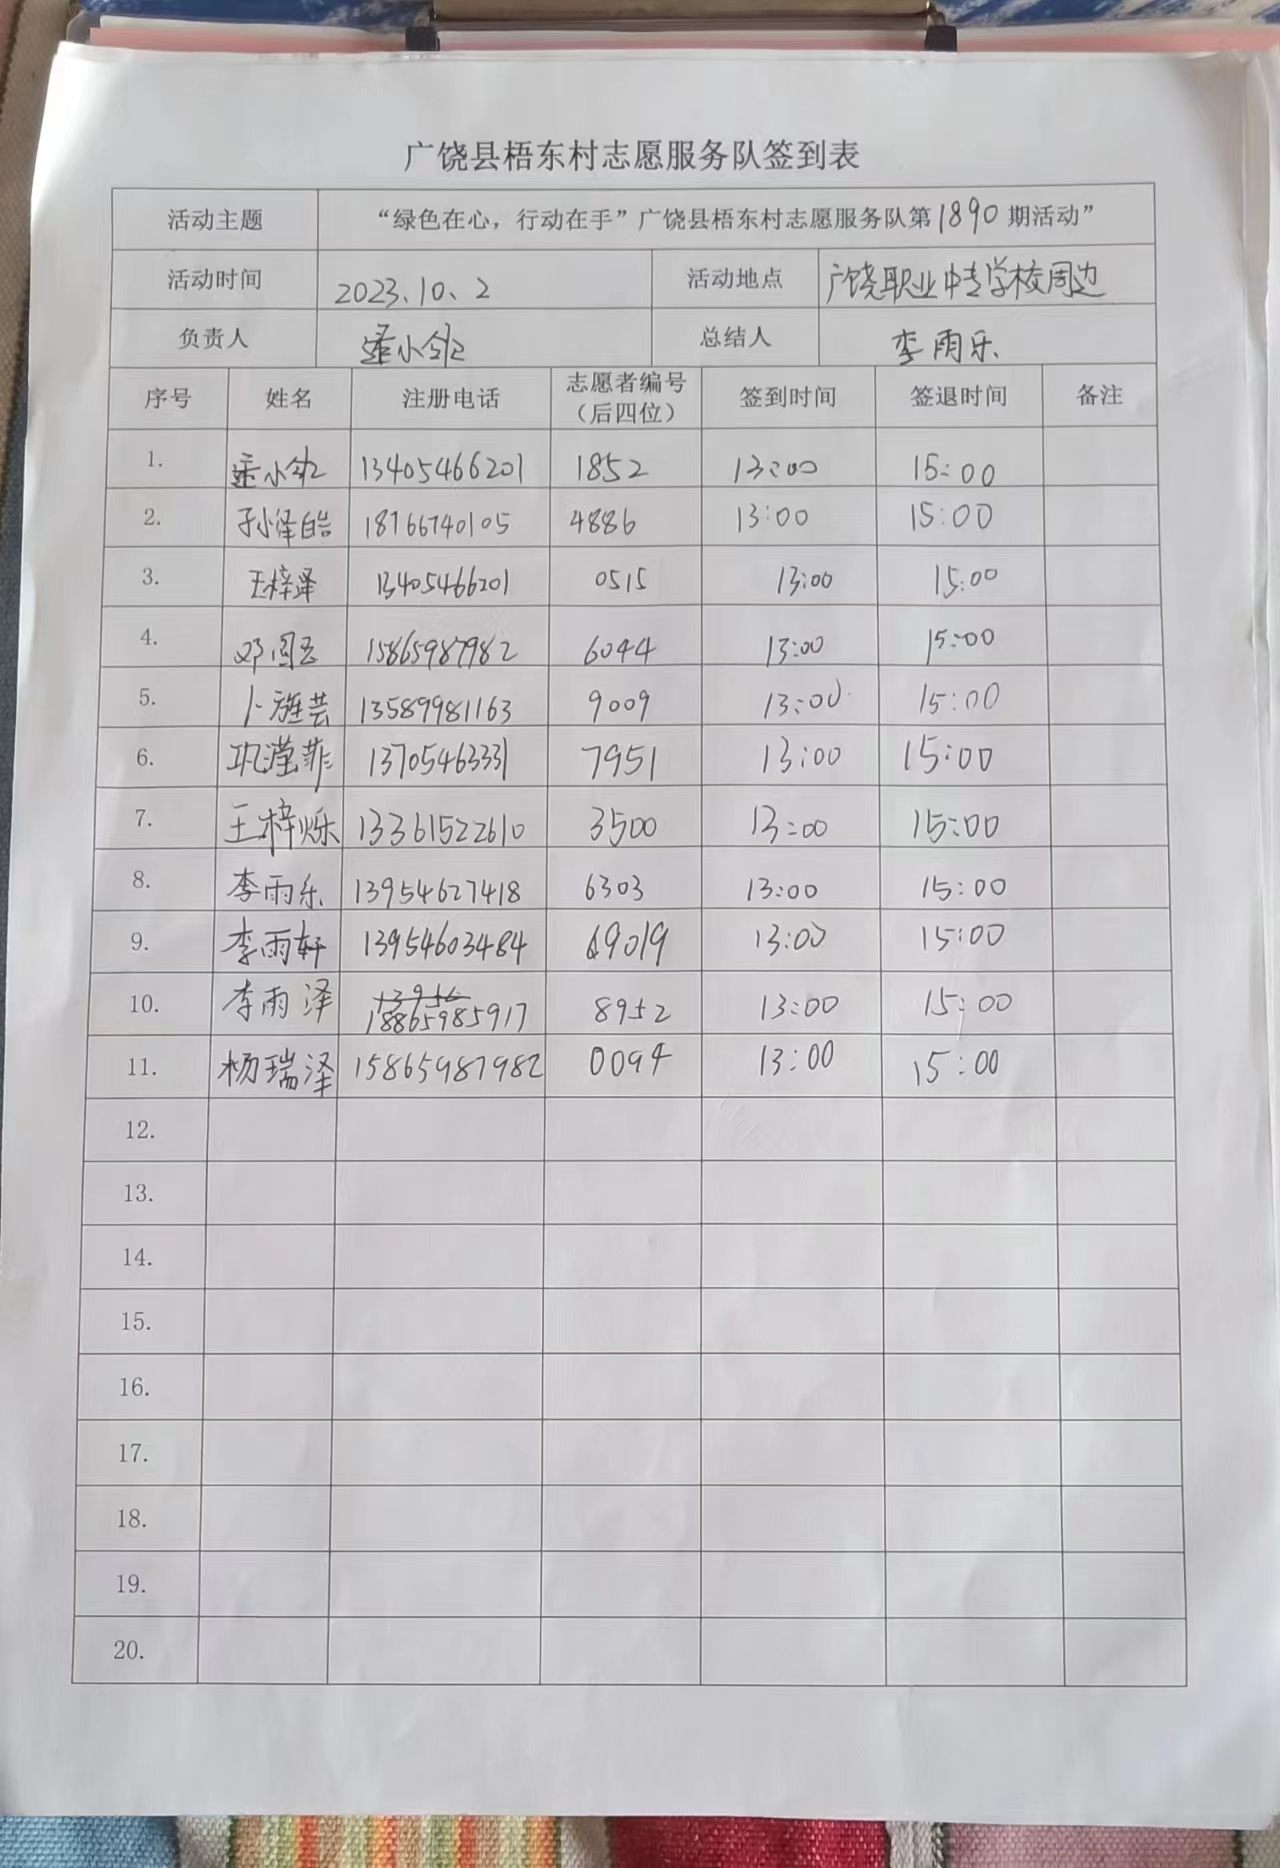 广饶县梧东村志愿服务队签到表
活动主题 “绿色在心，行动在手”广饶县梧东村志愿服务队第1890期活动”
活动时间 2023.10.2 活动地点 广饶职业中专学校周边
负责人 小 总结人 李雨乐
序号 姓名 注册电话 志愿者编号（后四位） 签到时间 签退时间 备注
1. 小 13405466201 1852 13:00 15:00
2. 孙泽皓 18766740105 4886 13:00 15:00
3. 王梓泽 13405466201 0515 13:00 15:00
4. 邓 15865987982 6044 13:00 15:00
5. 卜旌芸 13589981163 9009 13:00 15:00
6. 巩滢菲 13705463331 7951 13:00 15:00
7. 王梓烁 13361522610 3500 13:00 15:00
8. 李雨乐 13954627418 6303 13:00 15:00
9. 李雨轩 13954603484 9019 13:00 15:00
10. 李雨泽 18865985917 8952 13:00 15:00
11. 杨瑞泽 15865987982 0094 13:00 15:00
12.
13.
14.
15.
16.
17.
18.
19.
20.